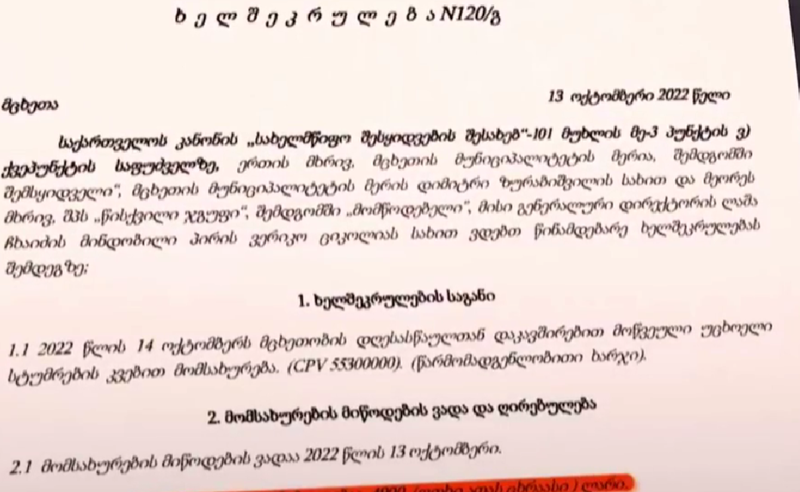 ხ ე ლ შ ე კ რ უ ლ ე ბ ა N120/გ
მცხეთა
13 ოქტომბერი 2022 წელი
საქართველოს კანონის „სახელმწიფო შესყიდვების შესახებ“-101 მუხლის მე-3 პუნქტის ვ)
ქვეპუნქტის საფუძველზე, ერთის მხრივ, მცხეთის მუნიციპალიტეტის მერია, შემდგომში
შემსყიდველი“, მცხეთის მუნიციპალიტეტის მერის დიმიტრი ზურაბიშვილის სახით და მეორეს
მხრივ, შპს „წისქვილი ჯგუფი“, შემდგომში „მომწოდებელი“, მისი გენერალური დირექტორის ლაშა
ჩხაიძის მინდობილი პირის ვერიკო ციკოლიას სახით ვდებთ წინამდებარე ხელშეკრულებას
შემდეგზე:
1. ხელშეკრულების საგანი
1.1 2022 წლის 14 ოქტომბერს მცხეთობის დღესასწაულთან დაკავშირებით მოწვეული უცხოელი
სტუმრების კვებით მომსახურება. (CPV 55300000). (წარმომადგენლობითი ხარჯი).
2. მომსახურების მიწოდების ვადა და ღირებულება
2.1 მომსახურების მიწოდების ვადაა 2022 წლის 13 ოქტომბერი.
ლარი.